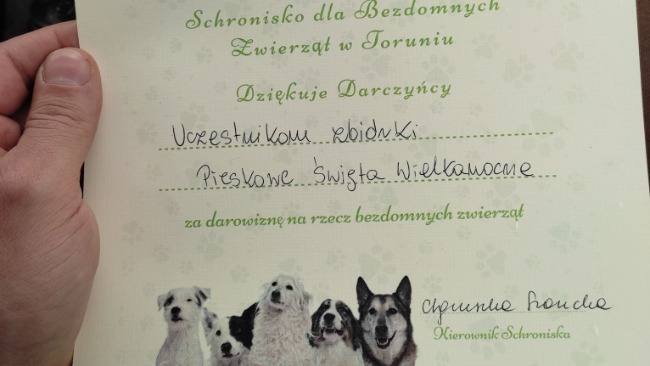 Schronisko dla Bezdomnych
Zwierząt w Toruniu
Dziękuje Darczyńcy
Uczestnikom zbiórki
Pieskowe Święta Wielkanocne
za darowiznę na rzecz bezdomnych zwierząt
Kierownik Schroniska